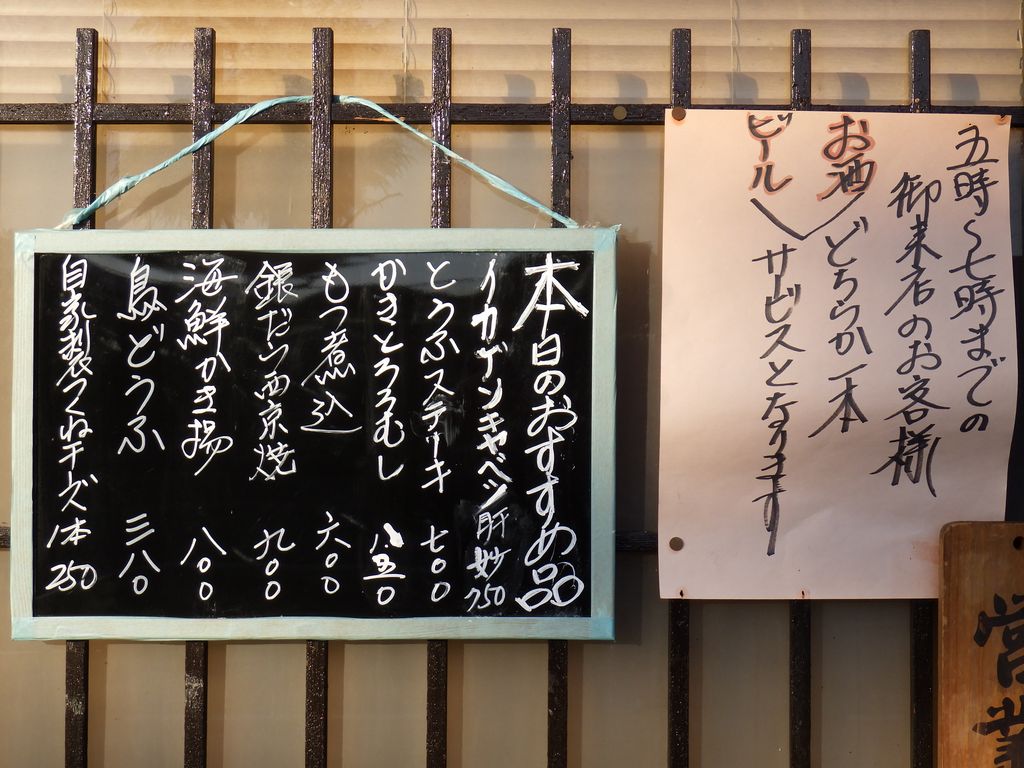 五時〜七時までの
御来店のお客様
お酒 どちらか一本
ビール サービスとなります
本日のおすすめ品
イカゲソキャベツ肝妙 750
とうふステーキ 七〇〇
かきとろろむし 八五〇
もつ煮込 六〇〇
銀だら西京焼 九〇〇
海鮮かき揚 八〇〇
鳥どうふ 三八〇
自家製つくねチーズ1本 250
営業